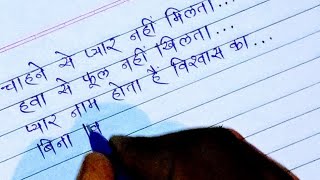 चाहने से प्यार नहीं मिलता...
हवा से फूल नहीं खिलता...
प्यार नाम होता है विश्वास का...
बिना